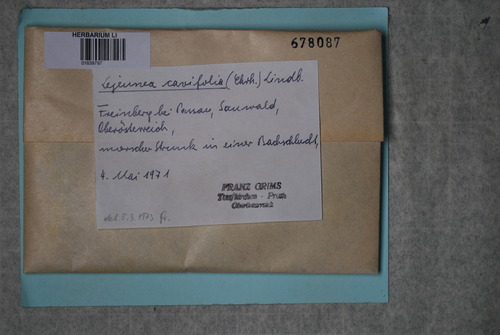 HERBARIUM LI
678087
Lejeunea cavifolia (Ehrh.) Lindb.
Freinberg bei Passau, Sauwald,
Oberösterreich,
morscher Strunk in einer Bachschlucht,
4. Mai 1971
FRANZ GRIMS
Taufkirchen - Pram
Oberösterreich
det. 5.3.1973 Gr.